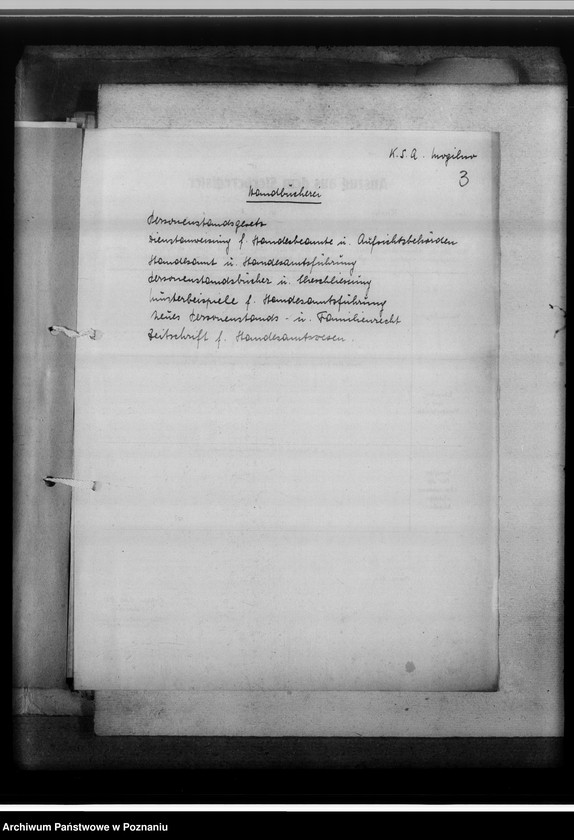 K. S. A. Mogilno
3
Handbücherei
Personenstandsgesetz
Dienstanweisung f. Standesbeamte u. Aufsichtsbehörden
Standesamt u. Standesamtsführung
Personenstandsbücher u. Eheschliessung
Musterbeispiele f. Standesamtsführung
Neues Personenstands- u. Familienrecht
Zeitschrift f. Standesamtswesen.
Archiwum Państwowe w Poznaniu